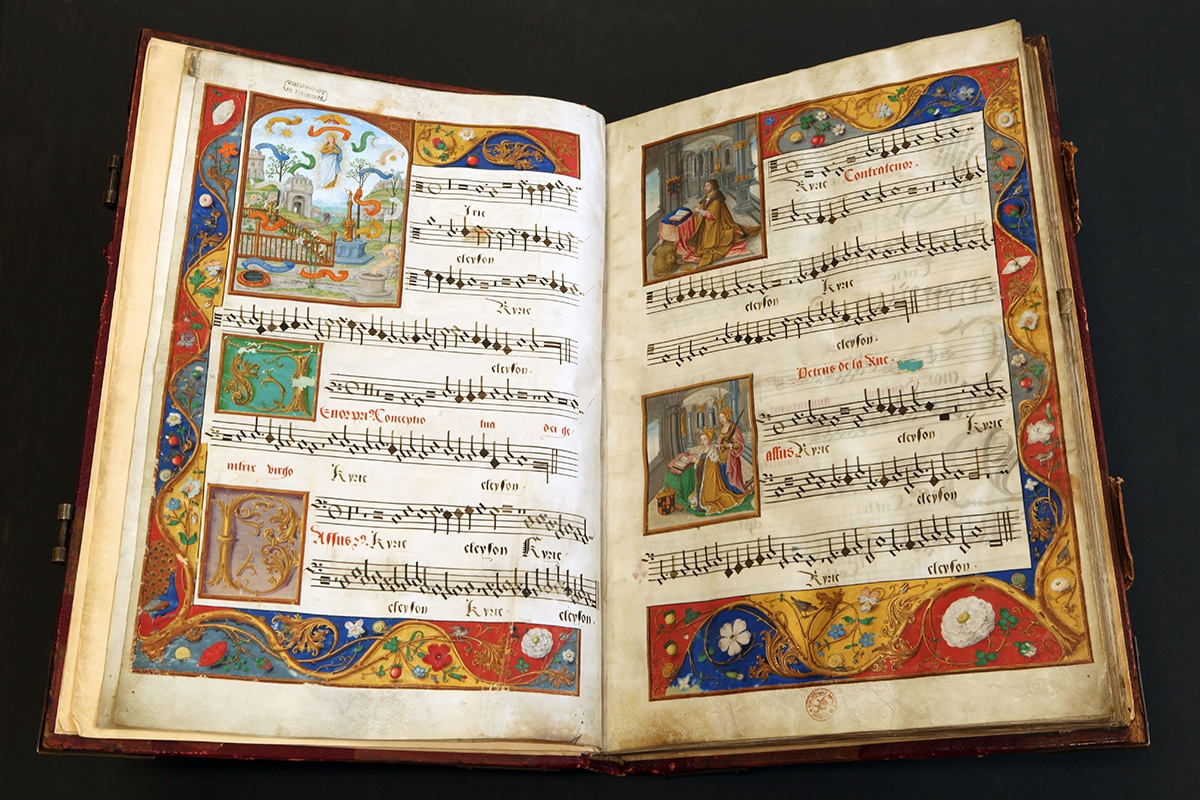 Irie
eleyson
Kyrie
eleyson
Enor pri Conceptio tua dei ge
nitrix virgo Kyrie
Assus 2us Kyrie eleyson Kyrie
eleyson Kyrie eleyson
Kyrie Contratenor
eleyson Kyrie
eleyson
Petrus de la Rue
assus Kyrie eleyson Kyrie
eleyson
Kyrie eleyson